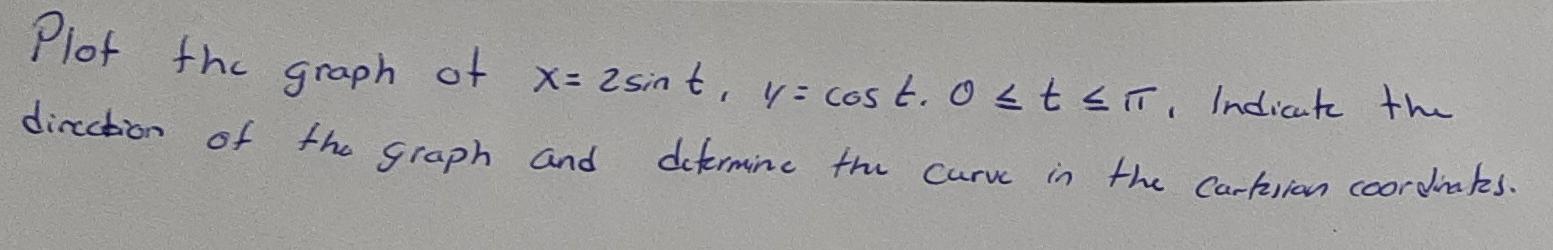 Plot the graph of x = 2 sin t, y = cos t. 0 ≤ t ≤ π, Indicate the
direction of the graph and determine the curve in the Cartesian coordinates.